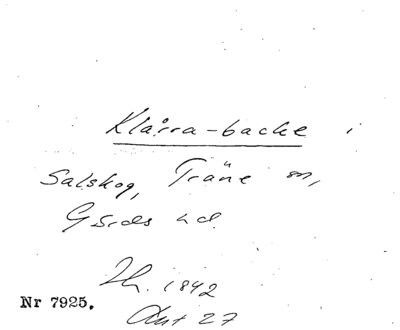 Klårra-backe i
Salskog, Träne sn,
Gärds hd.
Th. 1842
Nr 7925.
Akt 27